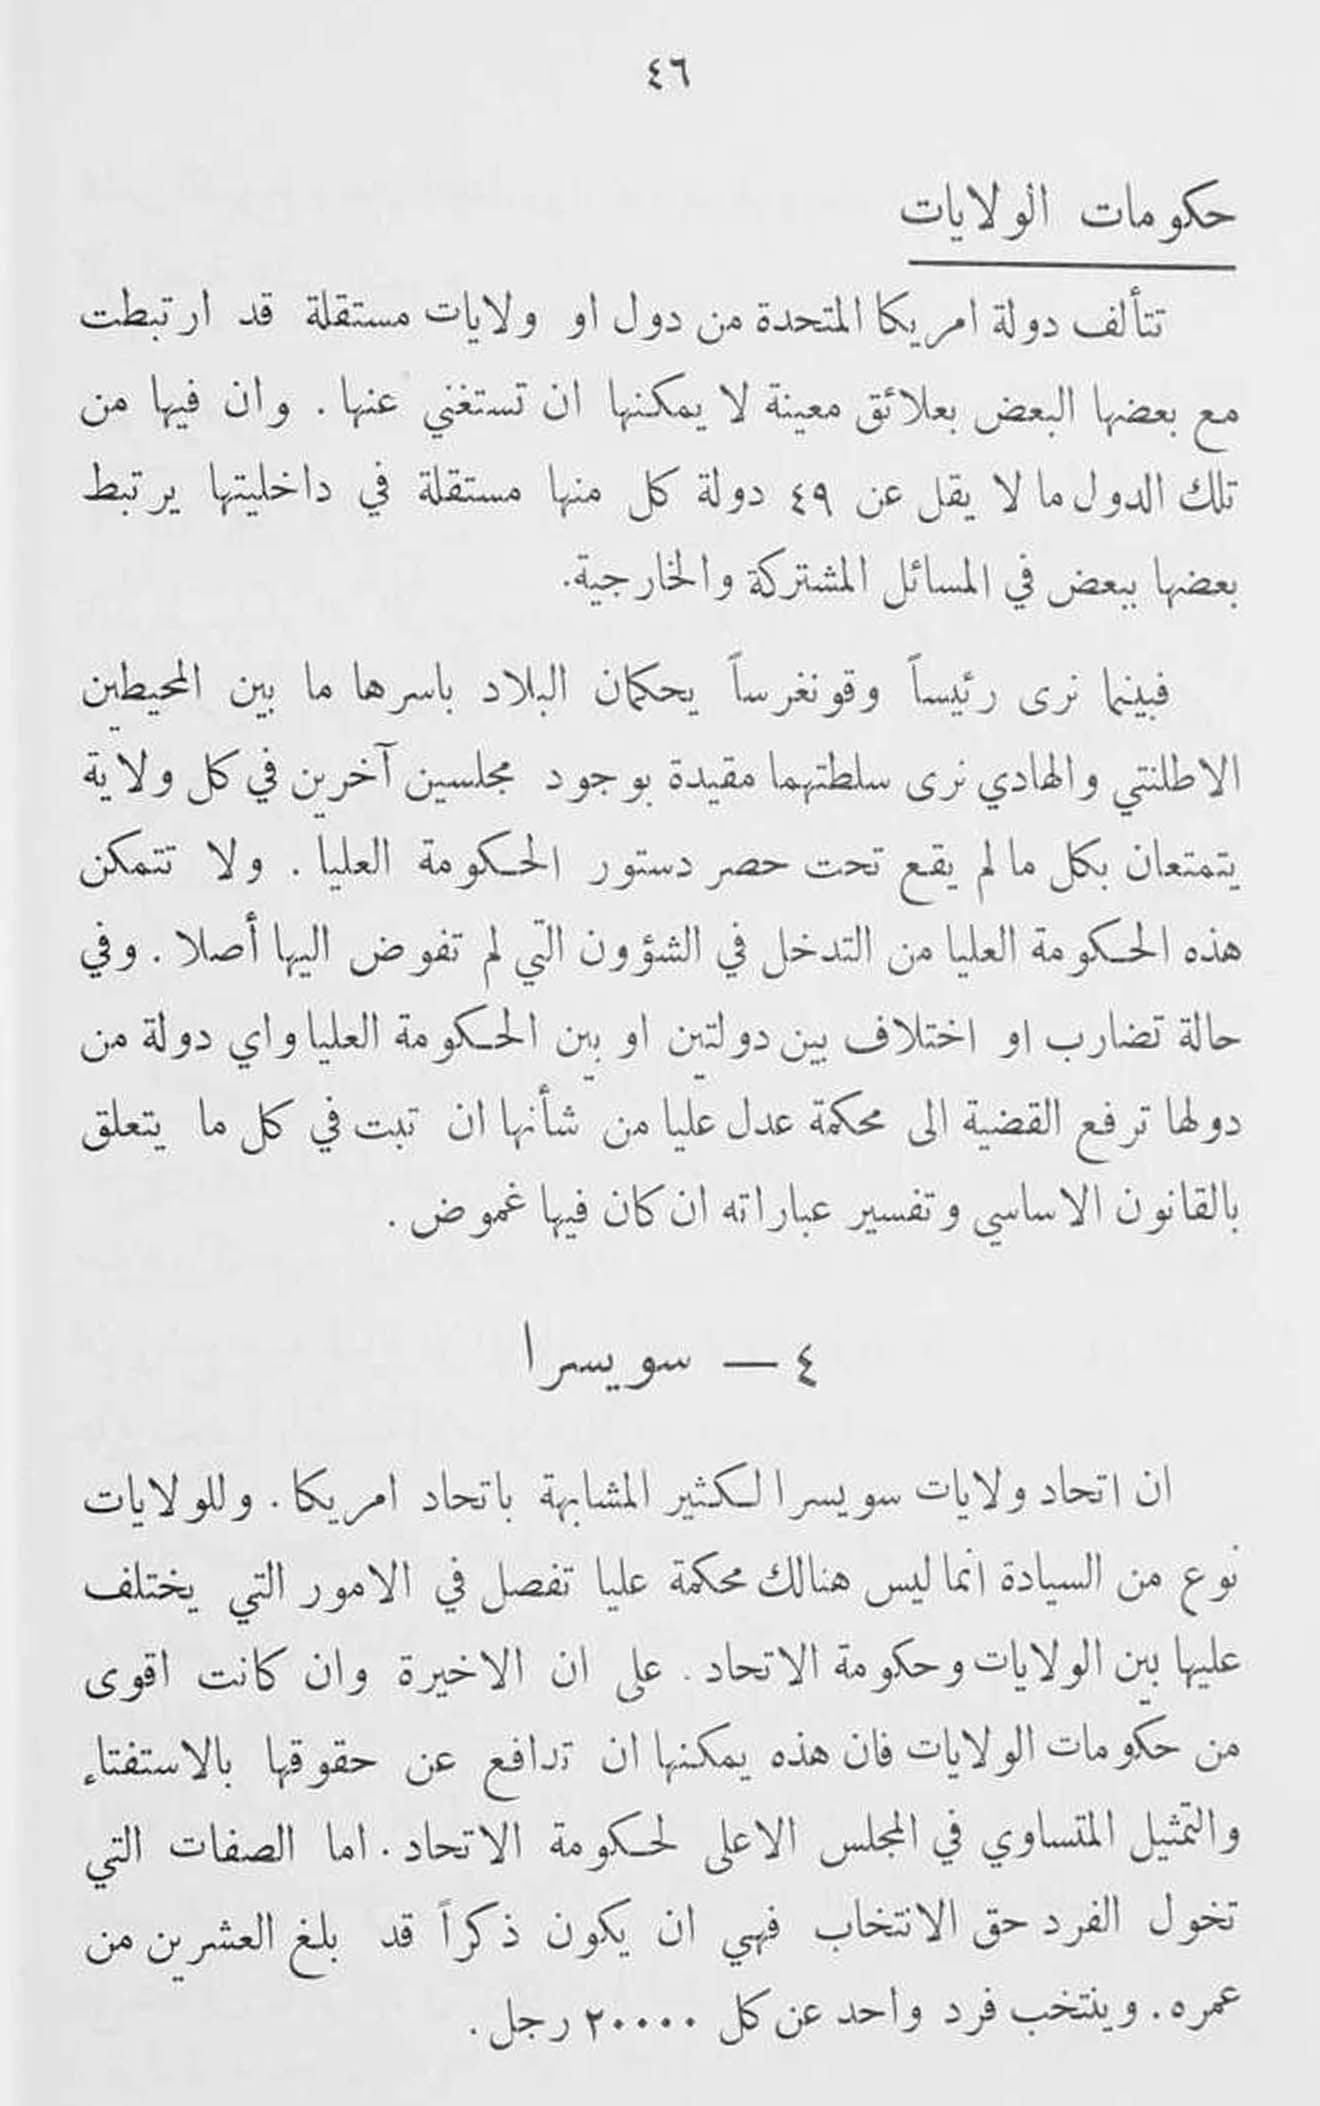 ٤٦
حكومات الولايات
تتألف دولة امريكا المتحدة من دول او ولايات مستقلة قد ارتبطت
مع بعضها البعض بعلائق معينة لا يمكنها ان تستغني عنها . وان فيها من
تلك الدول ما لا يقل عن ٤٩ دولة كل منها مستقلة في داخليتها يرتبط
بعضها ببعض في المسائل المشتركة والخارجية.
فبينما نرى رئيساً وقونغرساً يحكمان البلاد باسرها ما بين المحيطين
الاطلنتي والهادي نرى سلطتهما مقيدة بوجود مجلسين آخرين في كل ولاية
يتمتعان بكل ما لم يقع تحت حصر دستور الحكومة العليا . ولا تتمكن
هذه الحكومة العليا من التدخل في الشؤون التي لم تفوض اليها أصلا . وفي
حالة تضارب او اختلاف بين دولتين او بين الحكومة العليا واي دولة من
دولها ترفع القضية الى محكمة عدل عليا من شأنها ان تبت في كل ما يتعلق
بالقانون الاساسي وتفسير عباراته ان كان فيها غموض .
٤ — سويسرا
ان اتحاد ولايات سويسرا لكثير المشابهة باتحاد امريكا . وللولايات
نوع من السيادة انما ليس هنالك محكمة عليا تفصل في الامور التي يختلف
عليها بين الولايات وحكومة الاتحاد . على ان الاخيرة وان كانت اقوى
من حكومات الولايات فان هذه يمكنها ان تدافع عن حقوقها بالاستفتاء
والتمثيل المتساوي في المجلس الاعلى لحكومة الاتحاد . اما الصفات التي
تخول الفرد حق الانتخاب فهي ان يكون ذكراً قد بلغ العشرين من
عمره . وينتخب فرد واحد عن كل ٢٠٠٠٠ رجل .